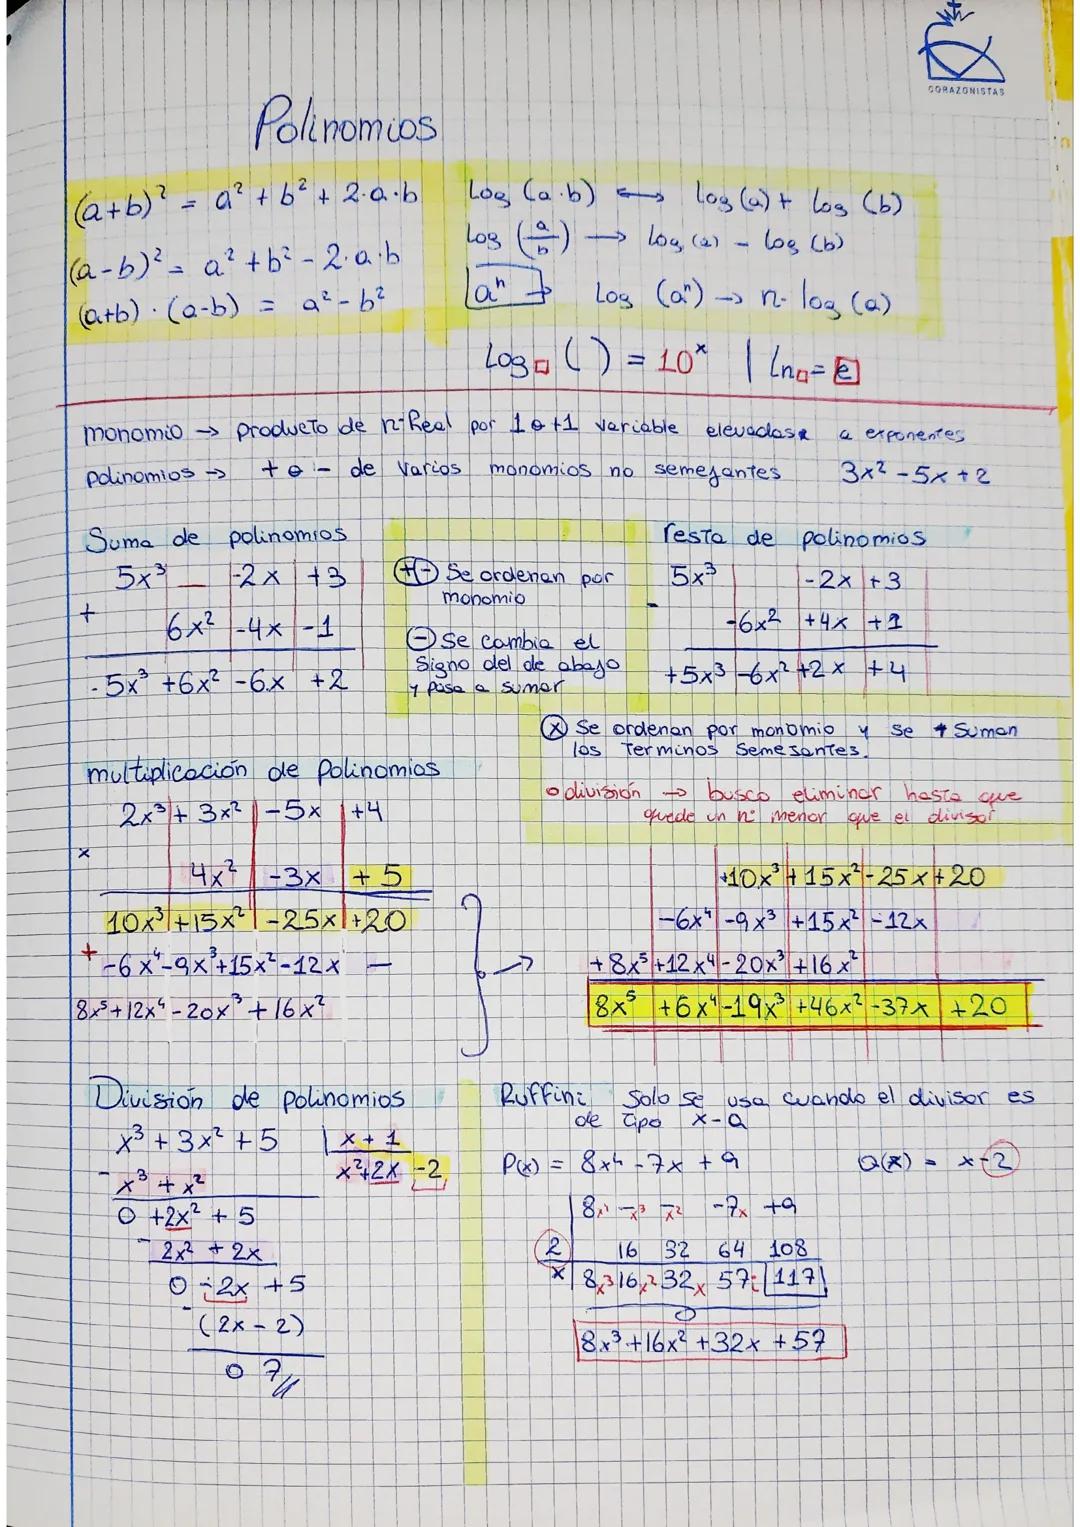 CORAZONISTAS
Polinomios
(a+b)² = a² + b² + 2·a·b
(a-b)² = a² + b² - 2·a·b
(a+b)·(a-b) = a² - b²
Log (a·b) ⟷ log (a) + log (b)
Log (a/b) → log (a) - log (b)
aⁿ → Log (aⁿ) → n· log (a)
Log□ ( ) = 10ˣ | Ln□ = e
monomio → producto de nº Real por 1 o +1 variable elevadas a exponentes
polinomios → + o - de varios monomios no semejantes 3x² - 5x + 2
Suma de polinomios
5x³ _ -2x +3
+
6x² -4x -1
5x³ +6x² -6x +2
+ - Se ordenan por
monomio
- Se cambia el
Signo del de abajo
y pasa a sumar
resta de polinomios
5x³ -2x +3
-
-6x² +4x +1
+5x³ -6x² +2x +4
x Se ordenan por monomio y se + Suman
los terminos Semesantes.
división → busco eliminar hasta que
quede un nº menor que el divisor
multiplicación de Polinomios
2x³ + 3x² -5x +4
x
4x² -3x +5
10x³ +15x² -25x +20
+ -6x⁴ -9x³ +15x² -12x —
8x⁵ +12x⁴ -20x³ +16x²
→
+10x³ +15x² -25x +20
-6x⁴ -9x³ +15x² -12x
+8x⁵ +12x⁴ -20x³ +16x²
8x⁵ +6x⁴ -19x³ +46x² -37x +20
División de polinomios
x³ + 3x² + 5 x + 1
- x³ + x² x²+2x -2
0 +2x² + 5
- 2x² + 2x
0 -2x +5
- (2x - 2)
0 7
Ruffini Solo se usa cuando el divisor es
de tipo x-a
P(x) = 8x⁴ - 7x + 9 Q(x) = x-2
8x⁴ -x³ x² -7x +9
2 16 32 64 108
x 8x³ 16x² 32x 57 117
8x³ +16x² +32x +57